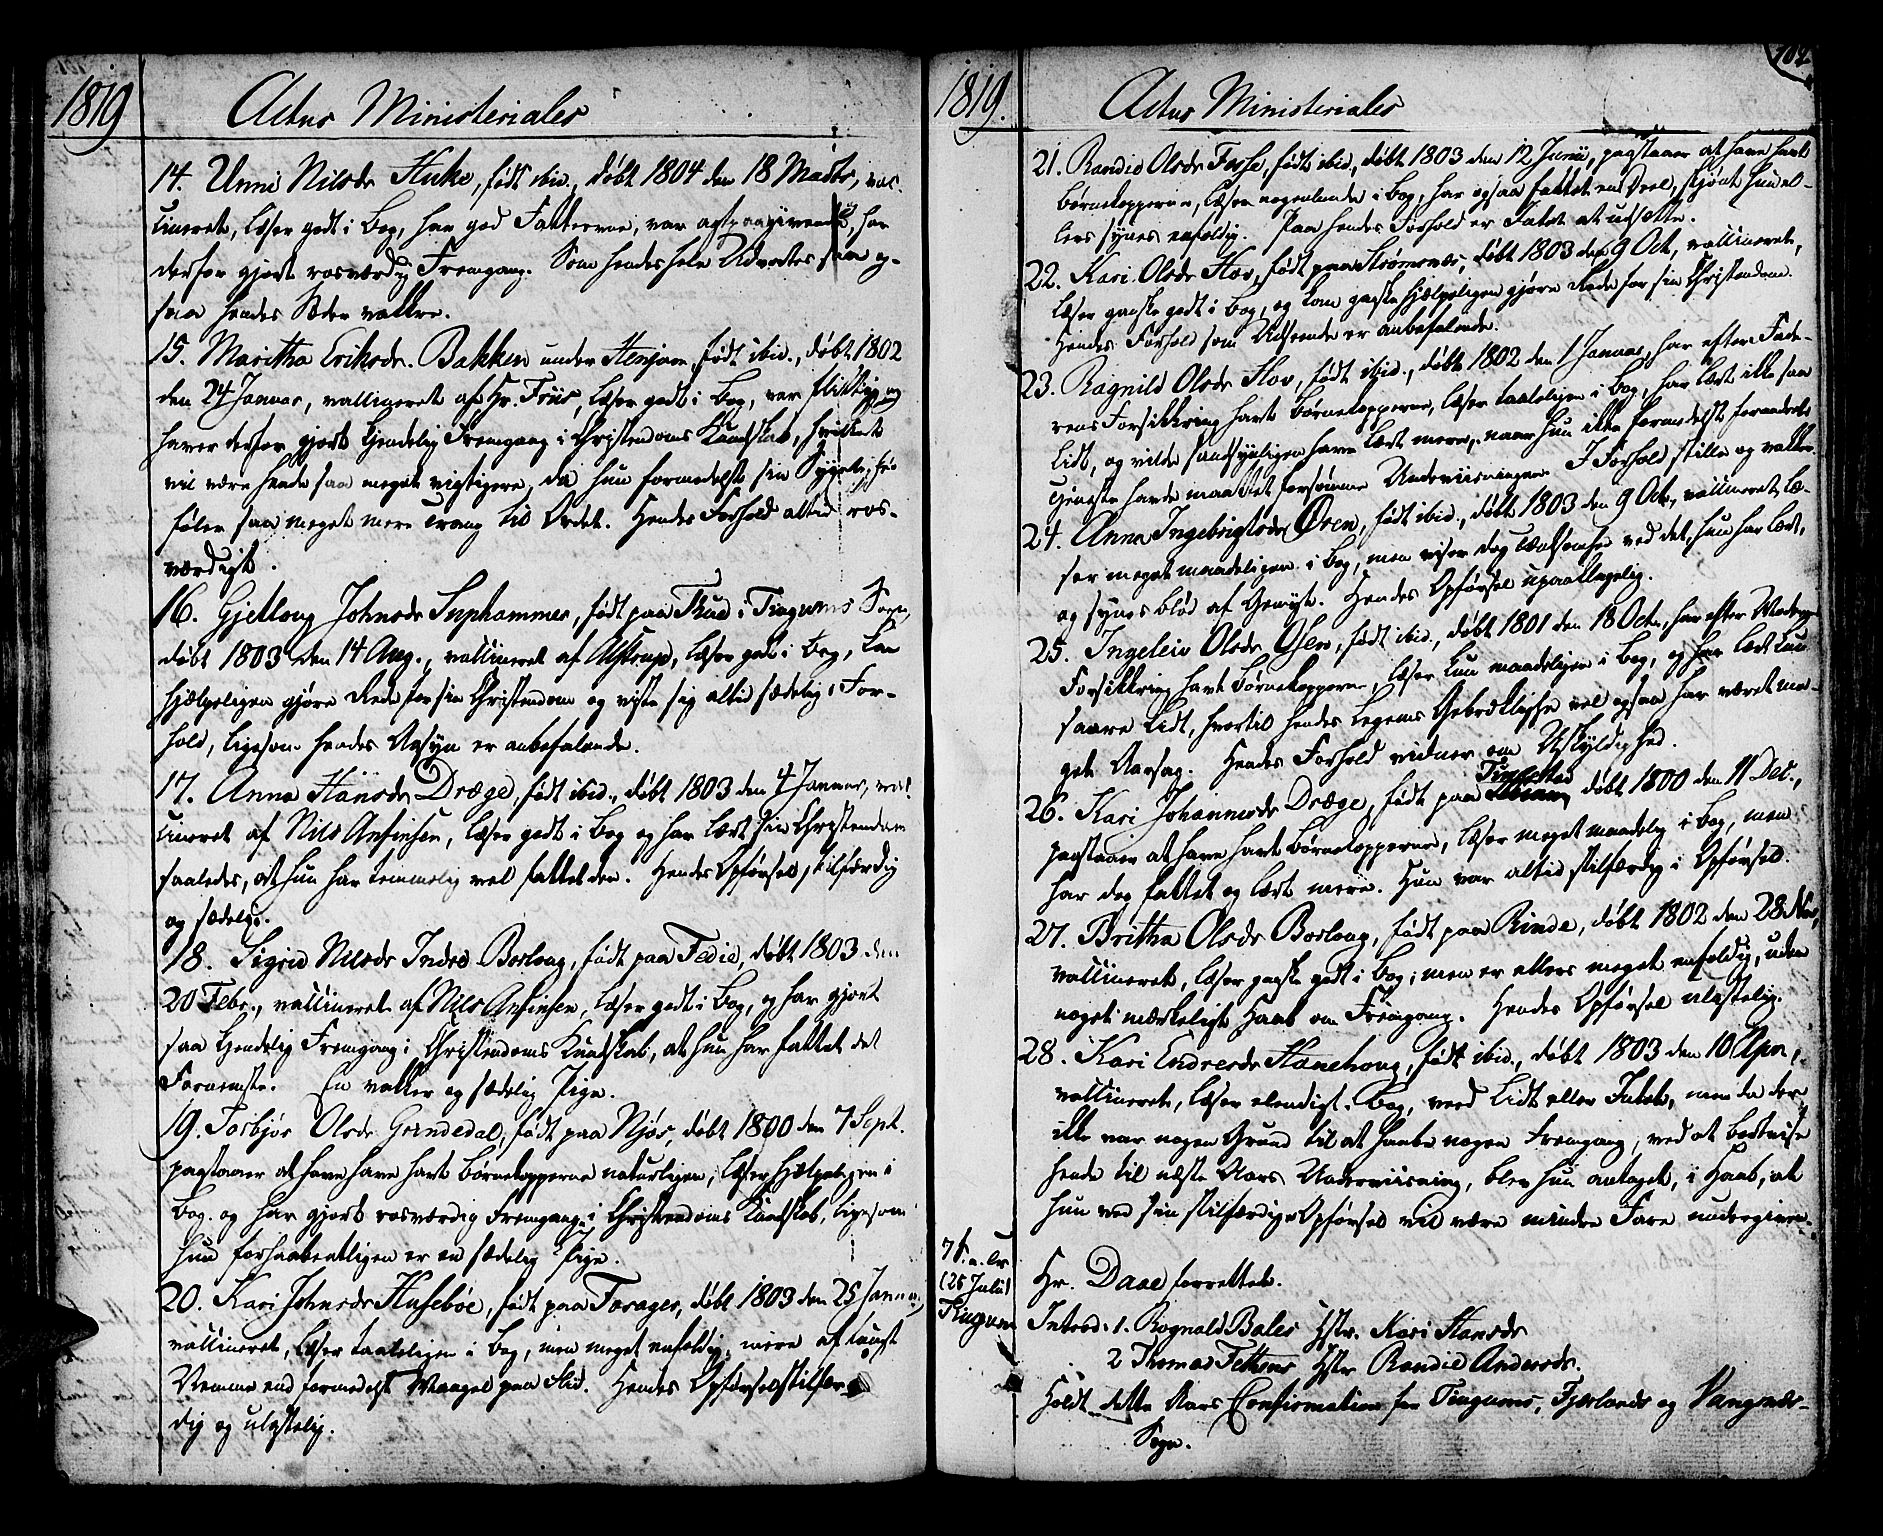 1819
Actus Ministeriales
14. Unni Nilsdr Huke, født ibid., døbt 1804 den 18 Marts, vac-
cineret, læser godt i Bog, har god Fatteevne, var agtpaagivende, har
derfor gjort rosværdig Fremgang. Som hendes hele Udvortes saa og-
saa hendes Sæder vakkre.
15. Maritha Eriksdr. Bakken under Henjum, født ibid., døbt 1802
den 24 Januar, vaccineret af Hr. Friis, læser godt i Bog, var flittig og
haver derfor gjort kjendelig Fremgang i Christendoms Kundskab, hvilket
vil være hende saa meget vigtigere, da hun formedelst sin Sygelighed
føler saa meget mere Trang til Ordet. Hendes Forhold altid ros-
værdigt.
16. Gjetloug Johnsdr Suphammer, født paa Rud i Tingums Sogn,
døbt 1803 den 14 Aug., vaccineret af Alstrup, læser godt i Bog, kan
hjælpeligen gjøre Rede for sin Christendom og viste sig altid sædelig i For-
hold, ligesom hendes Aasyn er anbefalende.
17. Anna Hansdr Dræge, født ibid., døbt 1803 den 4 Januar, vac-
cineret af Nils Anfinsen, læser godt i Bog og har lært sin Christendom
saaledes, at hun har temmelig vel fattet den. Hendes Opførsel stilfærdig
og sædelig.
18. Sigrid Nilsdr Indre Borloug, født paa Fedie, døbt 1803 den
20 Febr., vaccineret af Nils Anfinsen, læser godt i Bog, og har gjort
saa kjendelig Fremgang i Christendoms Kundskab, at hun har fattet det
Fornemste. En vakker og sædelig Pige.
19. Torbjør Olsdr Grindedal, født paa Njøs, døbt 1800 den 7 Sept.
paastaaer at have have havt Børnekopperne naturligen, læser hjælpeligen i
Bog og har gjort rosværdig Fremgang i Christendoms Kundskab, ligesom
hun forhaabentligen er en sædelig Pige.
20. Kari Johnsdr Husebøe, født paa Farager, døbt 1803 den 25 Januar,
vaccineret, læser taaleligen i Bog, men meget enfoldig, mere af tungt
Nemme end formedelst Mangel paa Flid. Hendes Opførsel stilfær-
dig og ulastelig.
1819.
Actus Ministeriales
102
21. Randid Olsdr Farse, født ibid., døbt 1803 den 12 Junii, paastaaer at have havt
Børnekopperne, læser nogenlunde i Bog, har ogsaa fattet en Deel, skjønt hun el-
lers synes enfoldig. Paa hendes Forhold er Intet at udsætte.
22. Kari Olsdr Hov, født paa Strømsnæs, døbt 1803 den 9 Oct, vaccineret,
læser ganske godt i Bog, og kan ganske hjælpeligen gjøre Rede for sin Christendom.
Hendes Forhold som Udseende er anbefalende.
23. Ragnild Olsdr Hov, født ibid., døbt 1802 den 1 Januar, har efter Fade-
rens Forsikkring havt Børnekopperne, læser taaleligen i Bog, har lært ikke saa
Lidt, og vilde sandsynligen have lært mere, naar hun ikke formedelst forandrede
Tjeneste havde maattet forsømme Underviisningen. I Forhold stille og vakker.
24. Anna Ingebrigtsdr Øren, født ibid., døbt 1803 den 9 Oct., vaccineret, læ-
ser meget maadeligen i Bog, men viser dog Eftertanke ved det, hun har lært,
og synes blød af Gemyt. Hendes Opførsel upaaklagelig.
25. Ingeleiv Olsdr Osen, født ibid., døbt 1801 den 18 Oct., har efter Moders
Forsikkring havt Børnekopperne, læser kun maadeligen i Bog, og har lært kun
saare Lidt, hvortil hendes Legems Gebrekkelighed vel ogsaa har været me-
get Aarsag. Hendes Forhold vidner om Uskyldighed.
26. Kari Johannesdr Dræge, født paa Tingstad døbt 1800 den 11 Dec.,
paastaaer at have havt Børnekopperne, læser meget maadelig i Bog, men
har dog fattet og lært mere. Hun var altid stilfærdig i Opførsel.
27. Britha Olsdr Borloug, født paa Rinde, døbt 1802 den 28 Nov,
vaccineret, læser ganske godt i Bog, men er ellers meget enfoldig, uden
noget mærkeligt Haab om Fremgang. Hendes Opførsel ulastelig.
28. Kari Endresdr Hanehoug, født ibid., døbt 1803 den 10 Apr.,
vaccineret, læser elendigt i Bog, veed Lidt eller Intet, men da der
ikke var nogen Grund til at haabe nogen Fremgang, ved at bortvise
hende til næste Aars Underviisning, blev hun antaget, i Haab, at
hun ved sin stilfærdige Opførsel vil være mindre Fare undergiven.
7 S. a. Tr.
(25 Julii)
Tingum
Hr. Daae forrettet.
Introd: 1. Rognald Bales Hstr. Kari Hansdr
2 Thomas Fettens Hstr Randie Andersdr.
Holdt dette Aars Confirmation for Tingums, Fjerlands og Vangsnæs-
Sogn.